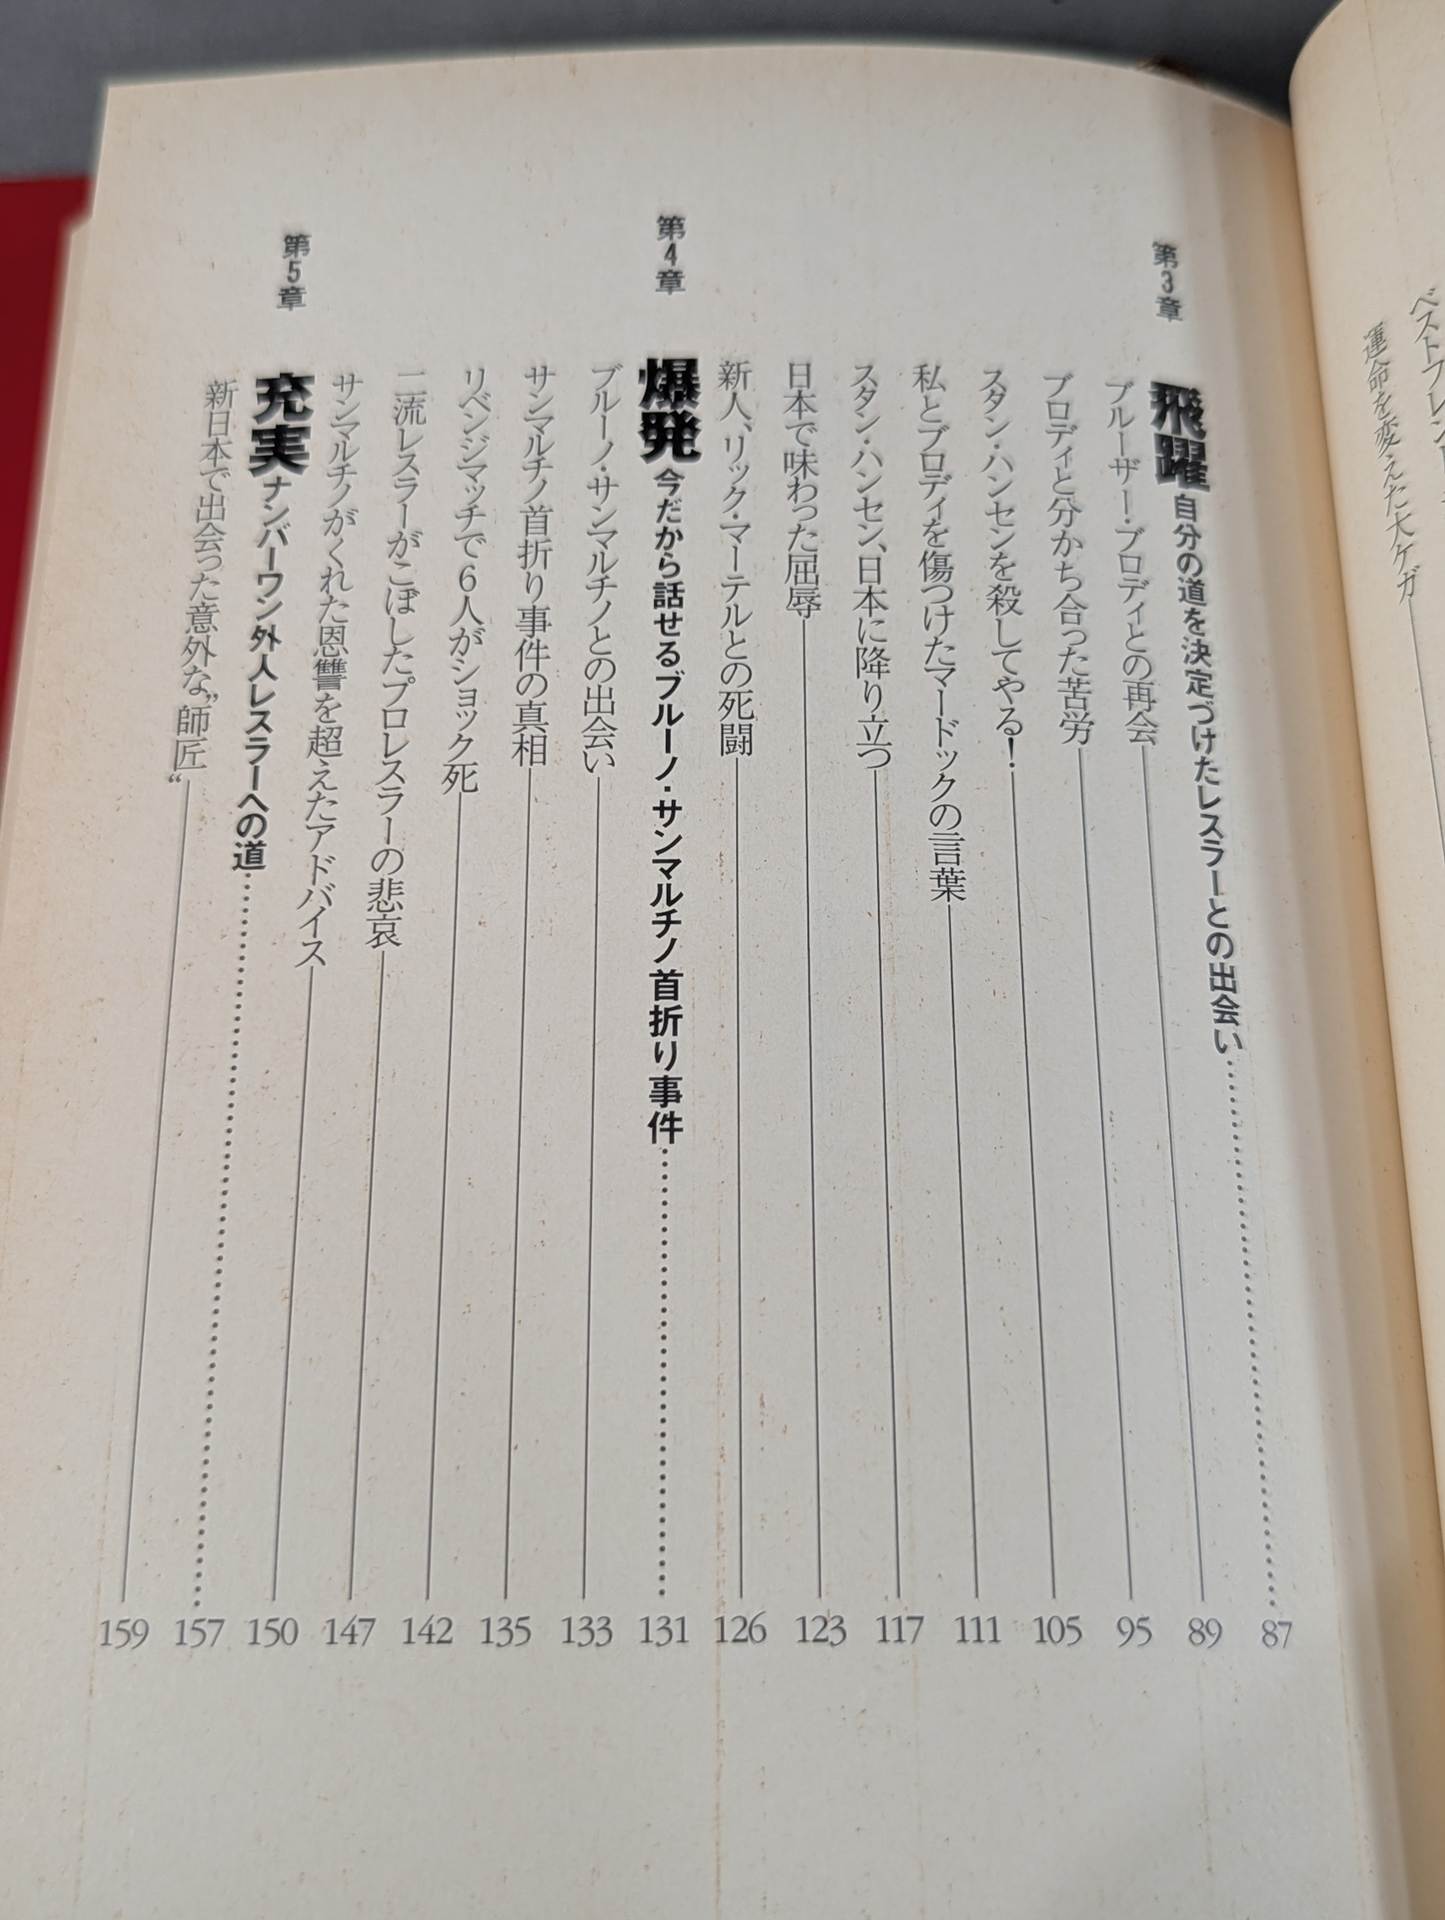 ベストフレン
運命を変えた大ケガ
第3章 飛躍 自分の道を決定づけたレスラーとの出会い 87
ブルーザー・ブロディとの再会 89
ブロディと分かち合った苦労 95
スタン・ハンセンを殺してやる! 105
私とブロディを傷つけたマードックの言葉 111
スタン・ハンセン、日本に降り立つ 117
日本で味わった屈辱 123
新人、リック・マーテルとの死闘 126
第4章 爆発 今だから話せるブルーノ・サンマルチノ首折り事件 131
ブルーノ・サンマルチノとの出会い 133
サンマルチノ首折り事件の真相 135
リベンジマッチで6人がショック死 142
二流レスラーがこぼしたプロレスラーの悲哀 147
サンマルチノがくれた恩讐を超えたアドバイス 150
第5章 充実 ナンバーワン外人レスラーへの道 157
新日本で出会った意外な"師匠" 159